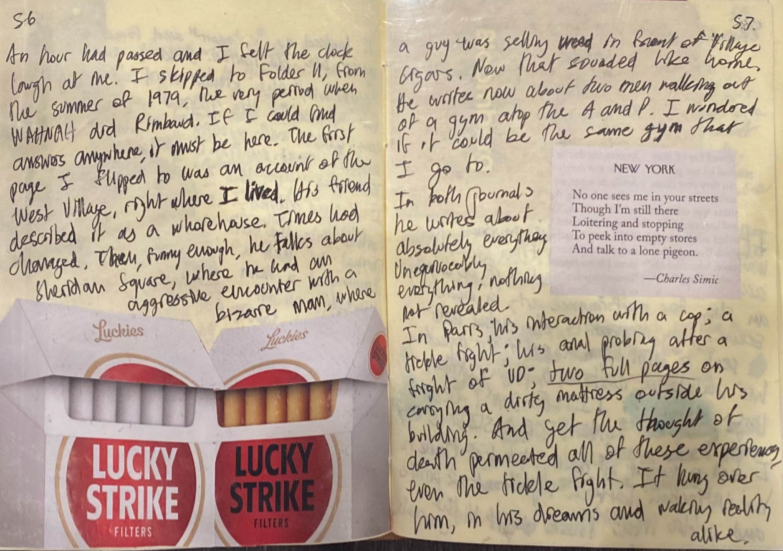 56
An hour had passed and I felt the clock
laugh at me. I skipped to Folder 11, from
the summer of 1979, the very period when
did Rimbaud. If I could find
answers anywhere, it must be here. The first
page I flipped to was an account of the
West Village, right where I lived. His friend
described it as a whorehouse. Times had
changed. Then, funny enough, he talks about
Sheridan Square, where he had an
aggressive encounter with a
bizarre man, where
Luckies
Luckies
LUCKY
STRIKE
FILTERS
LUCKY
STRIKE
FILTERS
57.
a guy was selling weed in front of Village
Cigars. Now that sounded like home.
He writes now about two men walking out
of a gym atop the A and P. I wondored
if it could be the same gym that
I go to.
NEW YORK
No one sees me in your streets
Though I'm still there
Loitering and stopping
To peek into empty stores
And talk to a lone pigeon.
—Charles Simic
In both journals
he writes about
absolutely everything
Unequivocably
everything; nothing
not revealed.
In Paris, his interaction with a cop; a
tickle fight; his anal probing after a
fright of VD; two full pages on
carrying a dirty mattress outside his
building. And yet the thought of
death permeated all of these experiences,
even the tickle fight. It hung over
him, in his dreams and waking reality
alike.